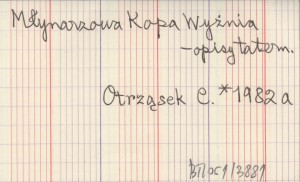 Młynarzowa Kopa Wyżnia
- opisy tatern.
Otrząsek C. *1982 a